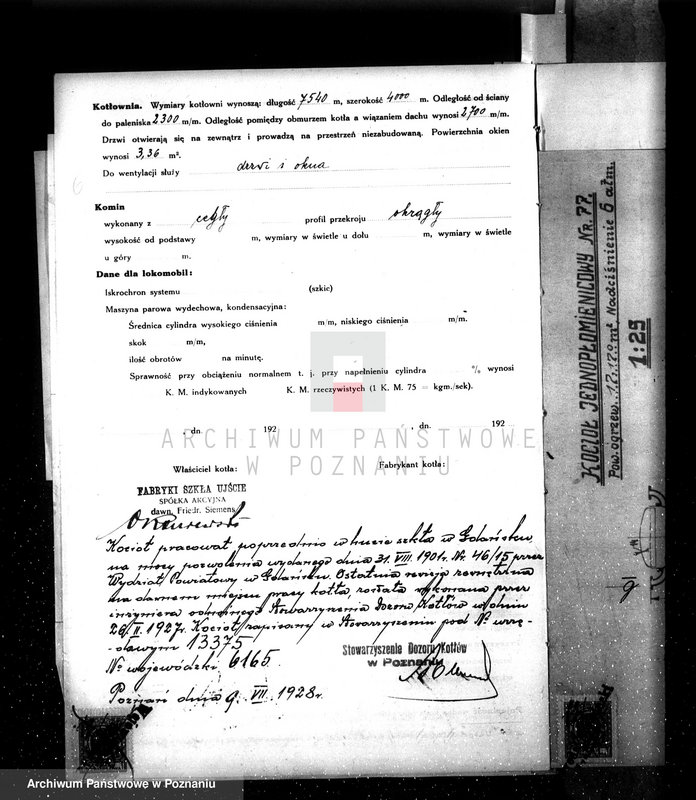 Kotłownia. Wymiary kotłowni wynoszą: długość 7540 m, szerokość 4000 m. Odległość od ściany
do paleniska 2300 m/m. Odległość pomiędzy obmurzem kotła a wiązaniem dachu wynosi 2700 m/m.
Drzwi otwierają się na zewnątrz i prowadzą na przestrzeń niezabudowaną. Powierzchnia okien
wynosi 3,36 m².
Do wentylacji służy drzwi i okna
Komin
wykonany z cegły profil przekroju okrągły
wysokość od podstawy m, wymiary w świetle u dołu m, wymiary w świetle
u góry m.
Dane dla lokomobil:
Iskrochron systemu (szkic)
Maszyna parowa wydechowa, kondensacyjna:
Średnica cylindra wysokiego ciśnienia m/m, niskiego ciśnienia m/m.
skok m/m,
ilość obrotów na minutę.
Sprawność przy obciążeniu normalnem t. j. przy napełnieniu cylindra % wynosi
K. M. indykowanych K. M. rzeczywistych (1 K. M. 75 = kgm./sek).
, dn. 192 , dn. 192
ARCHIWUM PAŃSTWOWE
W POZNANIU
Właściciel kotła: Fabrykant kotła:
FABRYKI SZKŁA UJŚCIE
SPÓŁKA AKCYJNA
dawn. Friedr. Siemens
Kocioł pracował poprzednio w hucie szkła w Gdańsku
na mocy pozwolenia wydanego dnia 31. VIII. 1901. Nr. 46/15 przez
Wydział Powiatowy w Gdańsku. Ostatnia rewizja zewnętrzna
na dawnem miejscu pracy kotła została wykonana przez
inżyniera Stowarzyszenia Dozoru Kotłów w dniu
26. II. 1927 r. Kocioł zapisany w Stowarzyszeniu pod Nr. urzę-
dowym 13375
Nr. wojewódzki 6165.
Stowarzyszenie Dozoru Kotłów
w Poznaniu
Poznań dnia 9. VII. 1928 r.
KOCIOŁ JEDNOPŁOMIENICOWY Nr. 77.
Pow. ogrzew. 17.170 m² Nadciśnienie 6 atm.
1:25
Archiwum Państwowe w Poznaniu